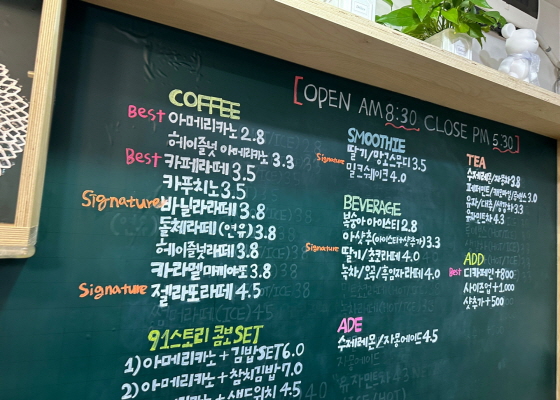 [OPEN AM 8:30 CLOSE PM 5:30]
COFFEE
Best 아메리카노 2.8
헤이즐넛 아메리카노 3.3
Best 카페라떼 3.5
카푸치노 3.5
Signature 바닐라라떼 3.8
돌체라떼 (연유) 3.8
헤이즐넛라떼 3.8
카라멜마끼아또 3.8
Signature 젤라또라떼 4.5
91스토리 콤보SET
1) 아메리카노 + 김밥SET 6.0
2) 아메리카노 + 참치김밥 7.0
아메리카노 + 샌드위치 4.5
SMOOTHIE
Signature 딸기/망고스무디 3.5
밀크쉐이크 4.0
BEVERAGE
복숭아 아이스티 2.8
아샷추 (아이스티+샷추가) 3.3
Signature 딸기/초코라떼 4.0
녹차/오곡/흑임자라떼 4.0
ADE
수제레몬/자몽에이드 4.5
TEA
수제레몬/자몽차 3.8
페퍼민트/캐모마일/ 3.0
유자/대추/생강차 3.3
유자민트차 4.3
ADD
Best 디카페인 +800
사이즈업 +1.000
샷추가 +500